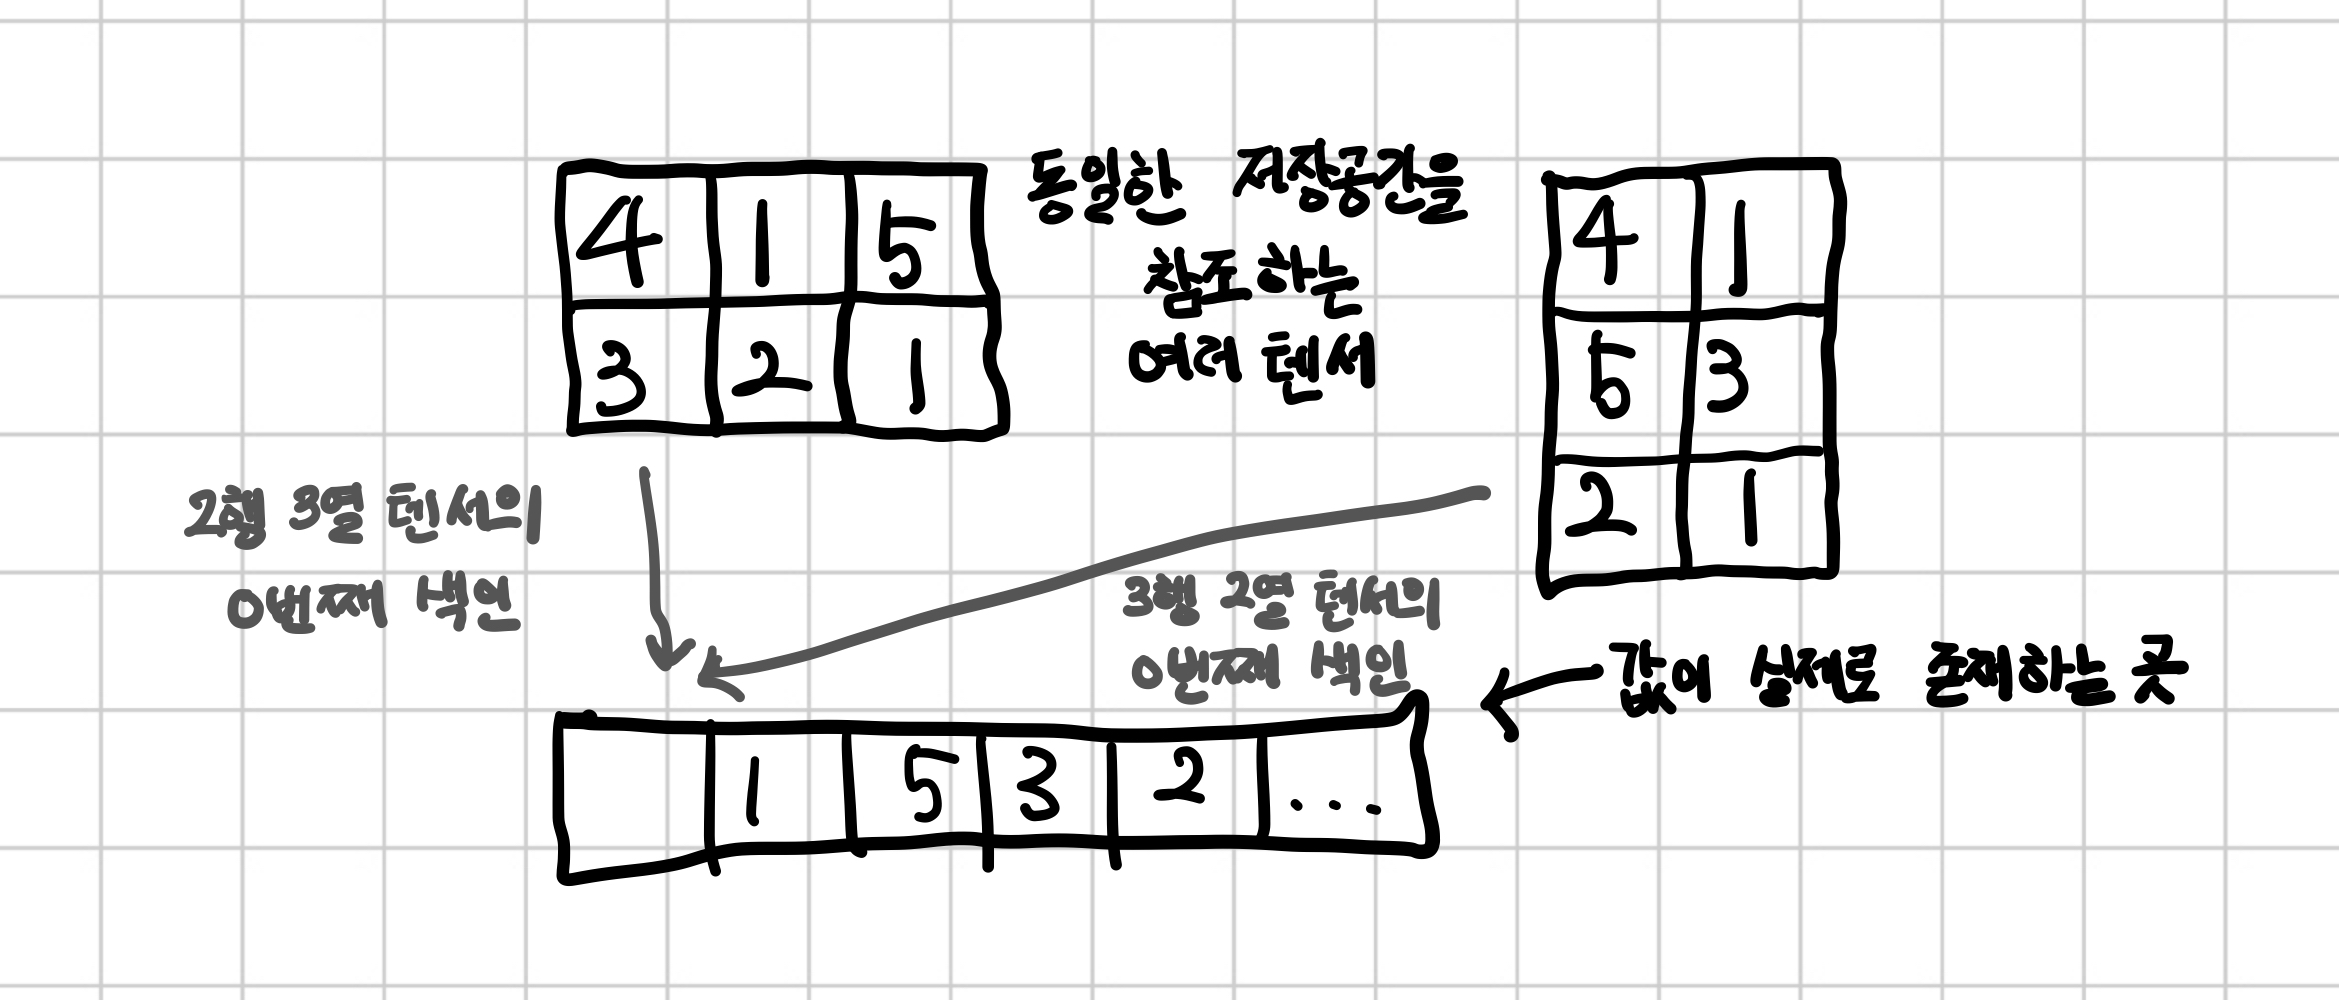 4 1 5
3 2 1
동일한 저장공간을
참조하는
여러 텐서
4 1
5 3
2 1
2행 3열 텐서의
0번째 색인
3행 2열 텐서의
0번째 색인
값이 실제로 존재하는 곳
1 5 3 2 ...